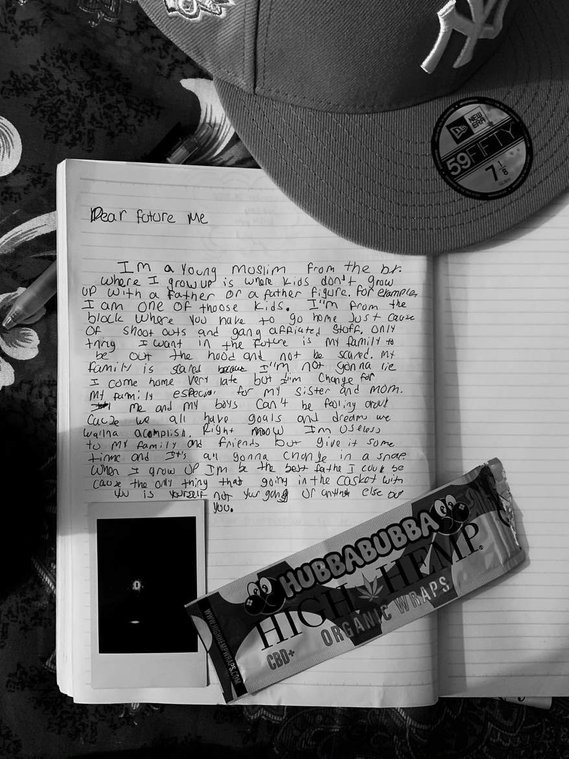 NY
NEW ERA
59FIFTY
7 1/8
Dear future Me
Im a young muslim from the bx.
where I grow up is where kids don't grow
up with a father or a father figure. for example,
I am one of thoose kids. I'm from the
block where you have to go home Just cause
OF shoot outs and gang affiliated stuff. only
thing I want in the future is my family to
be out the hood and not be scared. My
family is scared because I'm not gonna lie
I come home very late but I'm change for
my family for my sister and mom.
me and my boys can't be fooling around
Cause we all have goals and dreams we
wanna acomplish. Right now Im useless
to my family and friends but give it some
time and It's all gonna change in a snap
when I grow up I'm be the best father I could be
cause the only thing that going in the casket with
you is yourself not your gang or anything else but
you.
HUBBABUBBA
HIGH HEMP
ORGANIC WRAPS
CBD+